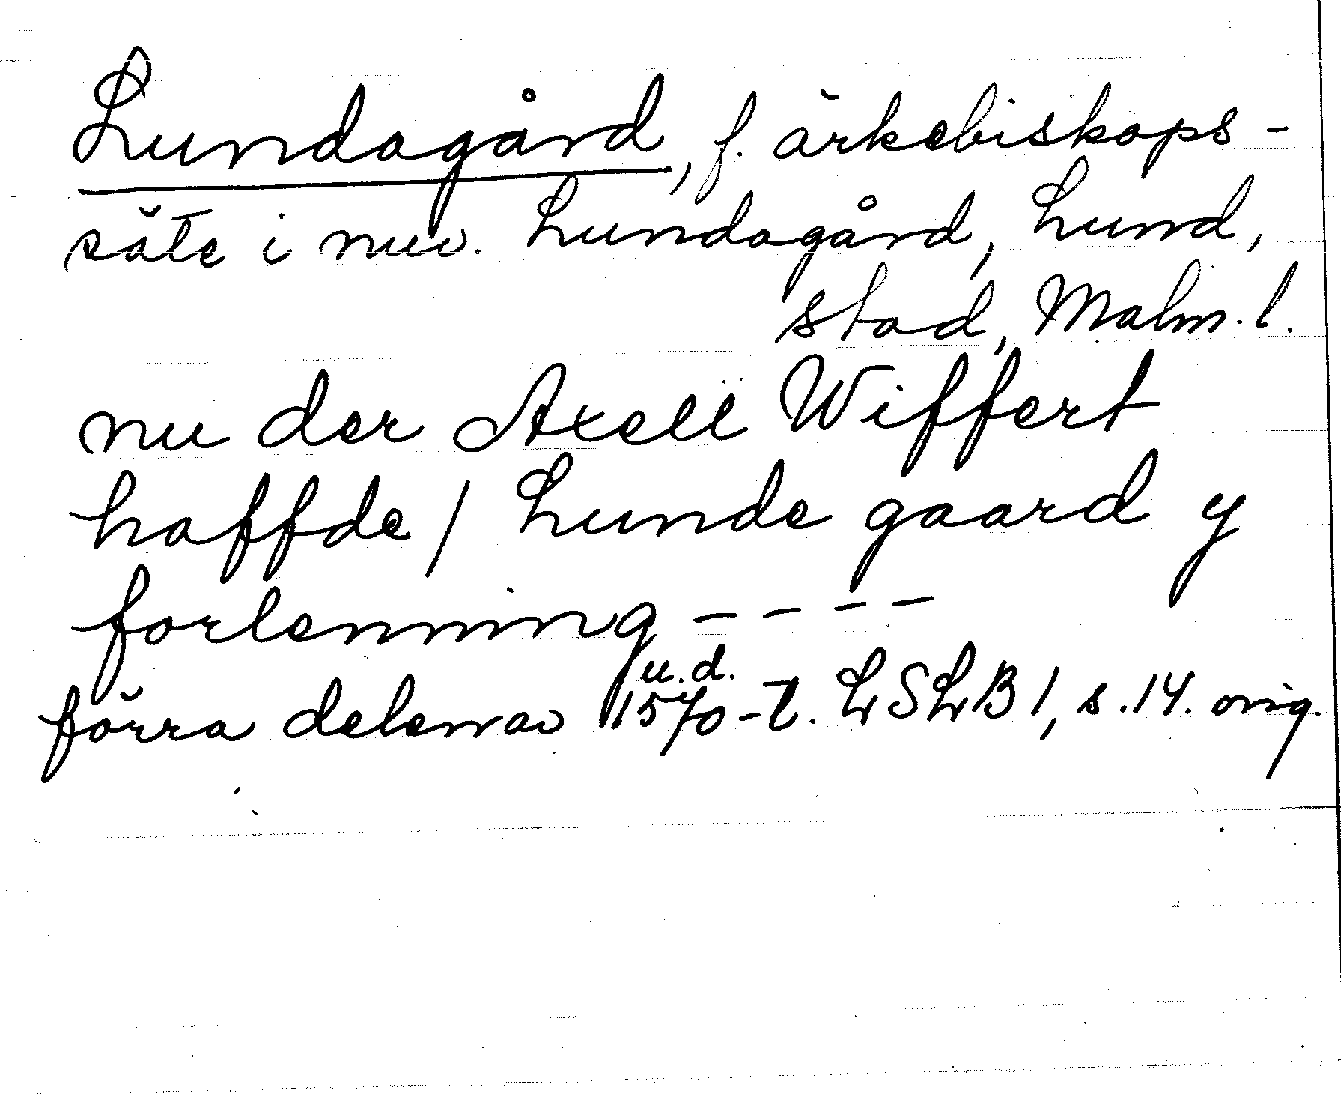 Lundagård, f. ärkebiskops-
säte i nuv. Lundagård, Lund,
stad, Malm. l.
nu der Axell Wiffert
haffde / Lunde gaard y
forlenning ----
u.d.
förra delen av 1570-t. LSLB 1, s. 14. orig.